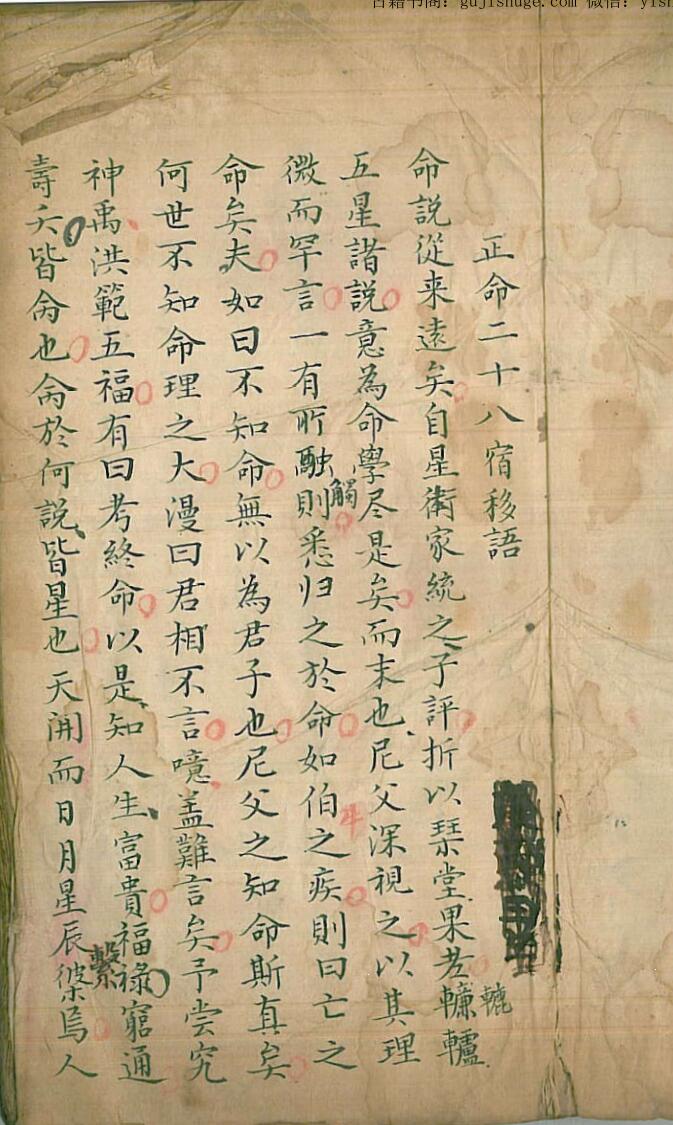 古籍书商：gujishuge.com 微信：yish
正命二十八宿移語
命說從来遠矣自星術家統之子評折以琹堂果老轆轤
轆
五星諸說意為命學尽是矣而末也尼父深視之以其理
微而罕言一有所融則悉归之於命如伯之疾則曰亡之
觸
牛
命矣夫如曰不知命無以為君子也尼父之知命斯真矣
何世不知命理之大漫曰君相不言噫盖難言矣予尝究
神禹洪範五福有曰考終命以是知人生富貴福祿窮通
繫
壽夭皆命也命於何說皆星也天開而日月星辰焉人